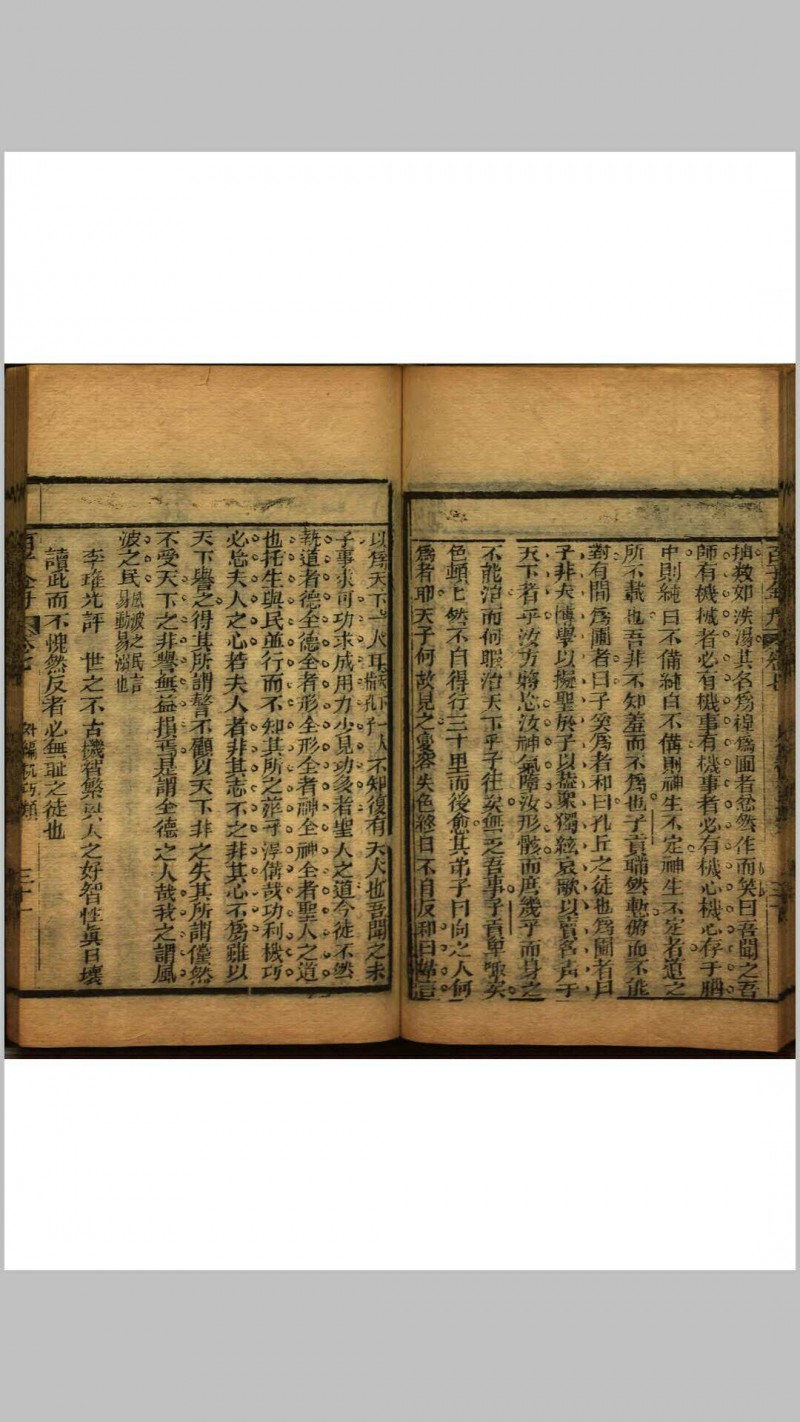 抽數如泆湯其名爲槔爲圃者忿然作而笑曰吾聞之吾
師有機械者必有機事有機事者必有機心機心存于胸
中則純白不備純白不備則神生不定神生不定者道之
所不載也吾非不知羞而不爲也子貢瞞然慙俯而不能
對有間爲圃者曰子奚爲者和曰孔丘之徒也爲圃者曰
子非夫博學以擬聖於于以葢衆獨絃哀歌以賣名声于
天下者乎汝方將忘汝神氣墮汝形骸而庶幾乎而身之
不能治而何暇治天下乎子往矣無乏吾事子貢卑陬失
色頊頊然不自得行三十里而後愈其弟子曰向之人何
爲者耶夫子何故見之變容失色終日不自反和曰始吾
以爲天下一人耳 天下一人惟孔子 不知復有夫人也吾聞之夫
子事求可功求成用力少見功多者聖人之道今徒不然
執道者德全德全者形全形全者神全神全者聖人之道
也托生與民並行而不知其所之茫乎淳備哉功利機巧
必忘夫人之心若夫人者非其志不之非其心不爲雖以
天下譽之得其所謂謷不顧以天下非之失其所謂儻然
不受天下之非譽無益損焉是謂全德之人哉我之謂風
波之民 風波之民言易動易溺也
李 光評 世之不古機智繁興人之好智性眞日壞
讀此而不愧然反者必無耻之徒也
百子金丹 卷七 外編 巧類 三十一